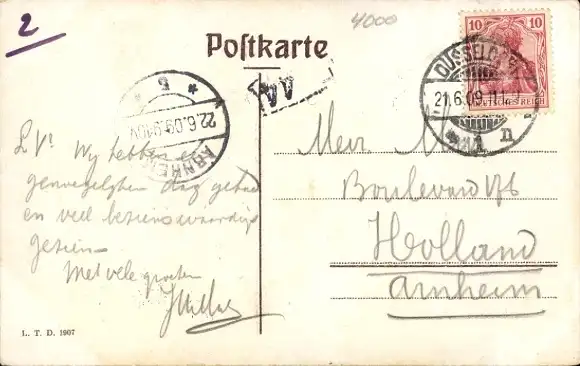 2
4000
Postkarte
10 10
DEUTSCHES REICH
DÜSSELDORF
21.6.09.11
1 n
ARNHEM
22.6.09
5
L.V! Wij hebben een
genoegelijken dag gehad
en veel bezienswaardigs
gezien
Met vele groeten
Boulevard
Holland
Arnheim
L. T. D. 1907